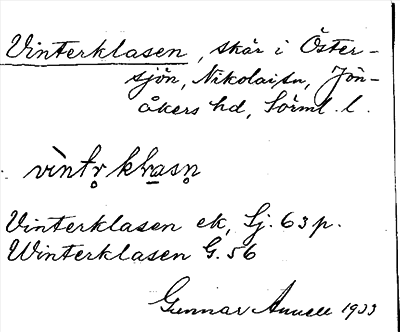 Vinterklasen, skär i Öster-
sjön, Nikolai sn, Jön-
åkers hd, Sörml. l.
vìntr̥ klasn̥
Vinterklasen ek, Sj. 63 p.
Winterklasen G. 56
Gunnar 1933